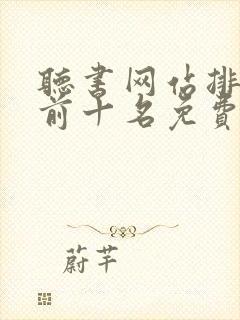 聽書网佔排
前十名免費
蔚芊